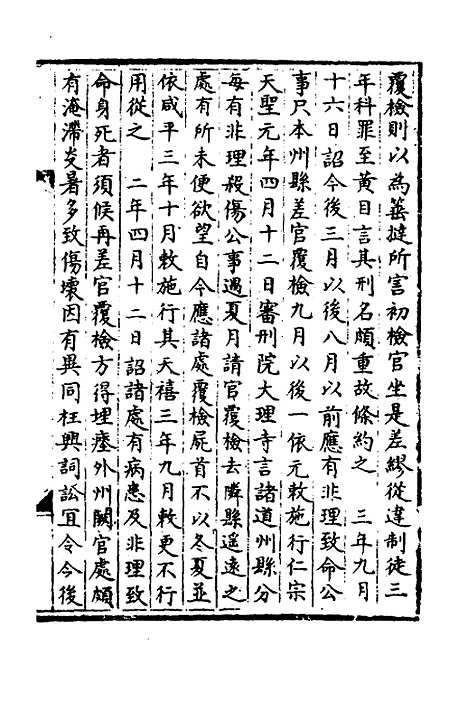 覆檢則以為箠撻所害初檢官坐是差繆從違制徒三
年科罪至黃目言其刑名頗重故條約之　三年九月
十六日詔今後三月以後八月以前應有非理致命公
事只本州縣差官覆檢九月以後一依元敕施行仁宗
天聖元年四月十二日審刑院大理寺言諸道州縣分
每有非理殺傷公事遇夏月請官覆檢去隣縣遥遠之
處有所未便欲望自今應諸處覆檢屍首不以冬夏並
依咸平三年十月敕施行其天禧三年九月敕更不行
用從之　二年四月十二日詔諸處有病患及非理致
命身死者須候再差官覆檢方得埋瘞外州闕官處頗
有淹滯炎暑多致傷壞因有異同枉興詞訟冝令今後